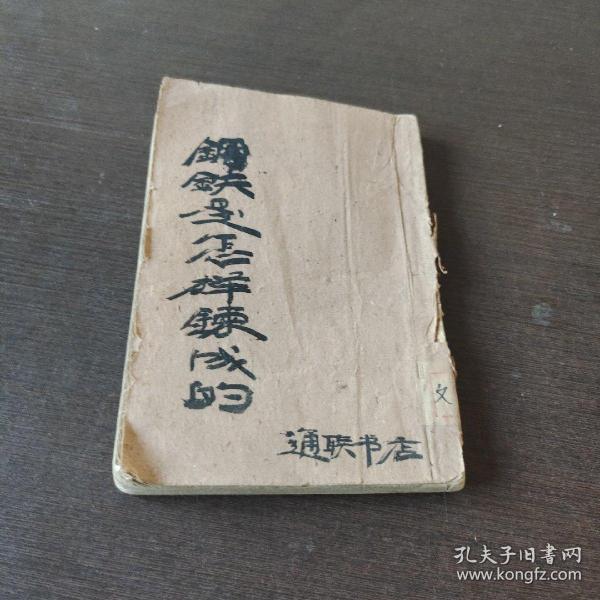 鋼鉄是怎样鍊成的
通联书店
文
孔夫子旧書网
www.kongfz.com